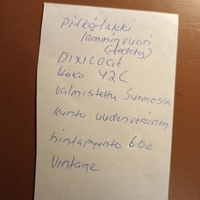 pitkätakki
lamminvuori
(teddy)
DIXICOAT
koko 42C
valmistettu Suomessa
kunto uudenveroinen
hintapyyntö 60e
Vintage